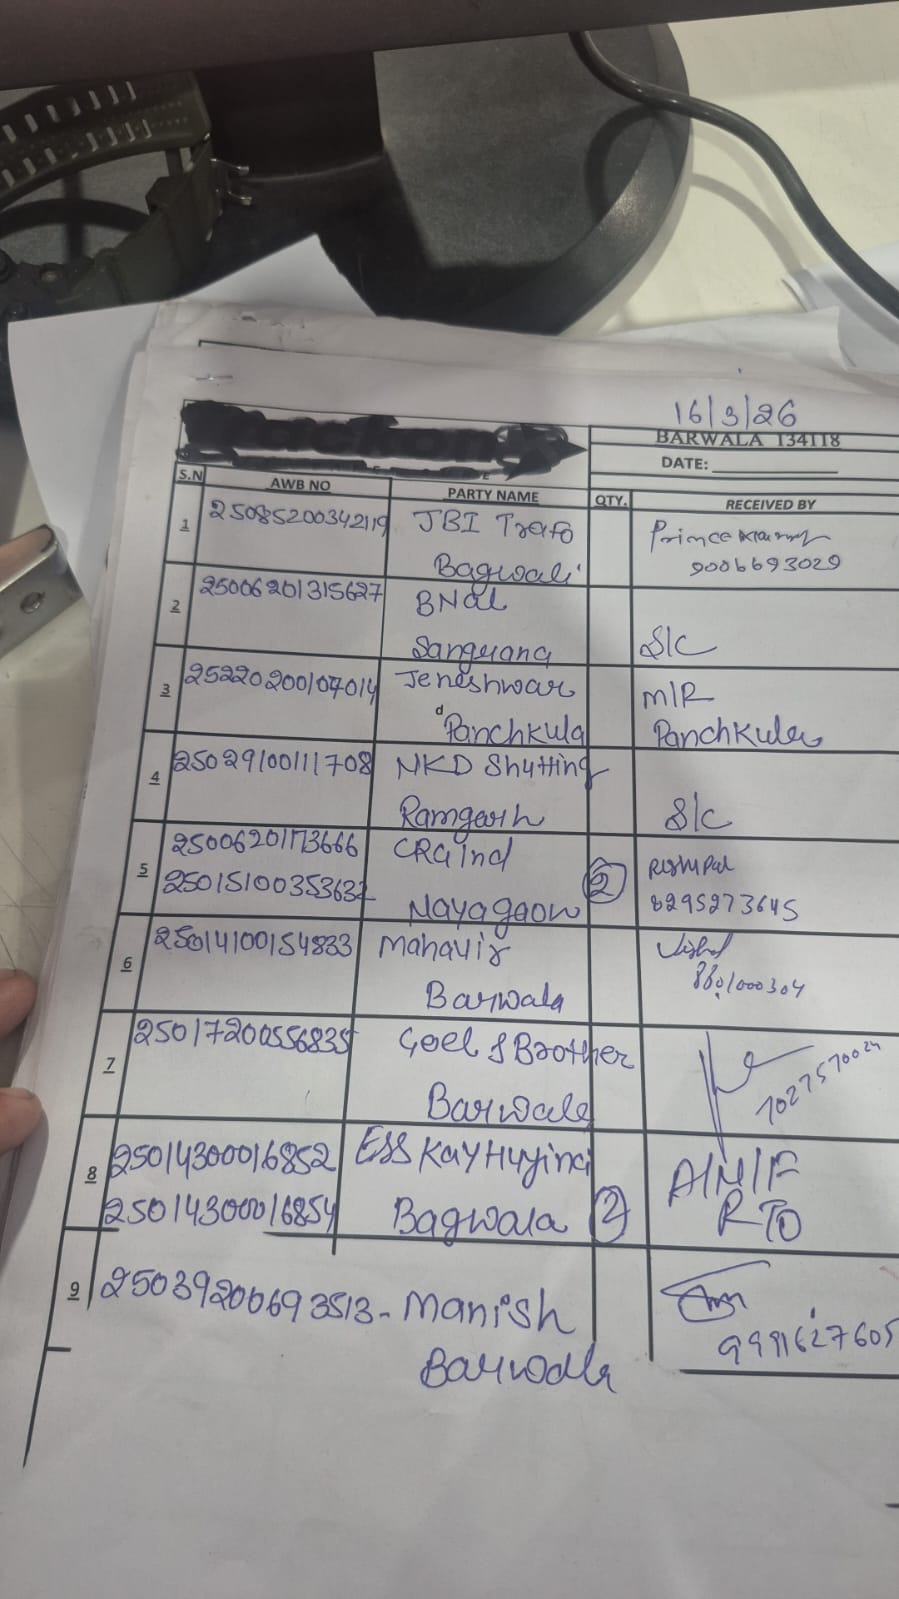 16/3/26
BARWALA 134118
DATE:
S.N AWB NO PARTY NAME QTY. RECEIVED BY
1 25085200342119 JBI Trafo
Bagwali
9006693029
2 25006201315627 BNal
S/C
3 25220200107014 Jeneshwar M/R
Panchkula Panchkula
4 25029100111708 NKD Shutting
Ramgarh S/C
5 25006201173666 CRG Ind
25015100353632 Nayagaon 2 8295273645
6 25014100154833 Mahavir
Barwala 8601000304
7 25017200556835 Goel & Brother
Barwala 7027570024
8 25014300016852 ESS Kay
25014300016854 Bagwala 2 RTO
9 25039200693513 - Manish
Barwala 9991627605